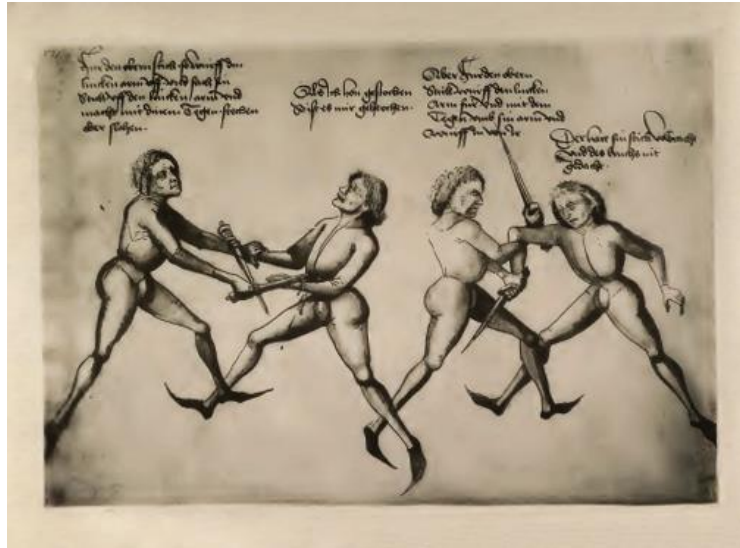 Für den obern stich so wurff den
lincken arm uff und fach sin
Stich uff den lincken arm und
mach mit dinem Tegen stechen
oder slahen.
Als Ich hon gestochen
So ist es mir gebrochen.
Aber Für den obern
Stich wurff den lincken
Arm für und mit dem
Tegen umb sin arm und
wurff in von dir
Der hatt sin stich volbracht
und des bruchs nit
gedacht.